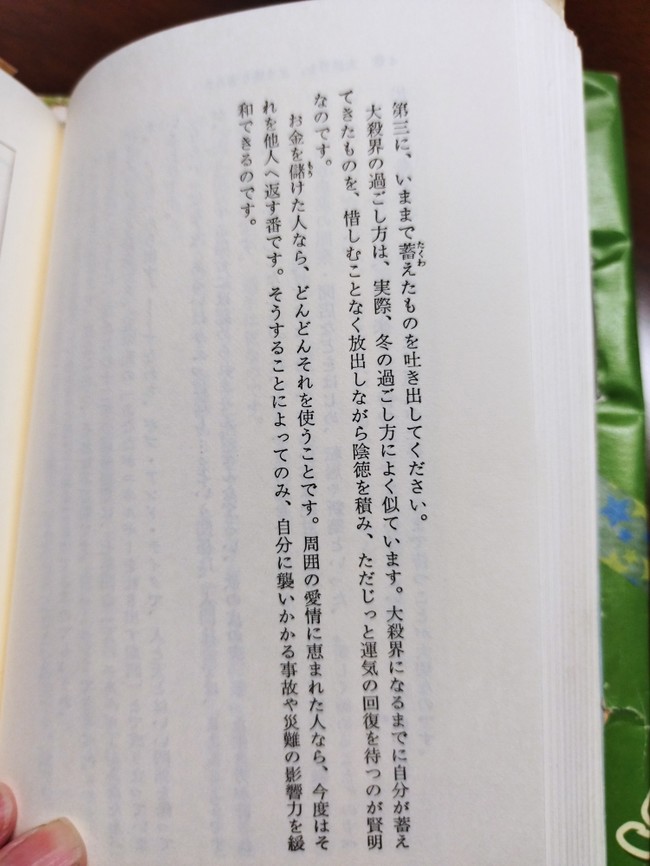 第三に、いままで蓄えたものを吐き出してください。
大殺界の過ごし方は、実際、冬の過ごし方によく似ています。大殺界になるまでに自分が蓄え
てきたものを、惜しむことなく放出しながら陰徳を積み、ただじっと運気の回復を待つのが賢明
なのです。
お金を儲けた人なら、どんどんそれを使うことです。周囲の愛情に恵まれた人なら、今度はそ
れを他人へ返す番です。そうすることによってのみ、自分に襲いかかる事故や災難の影響力を緩
和できるのです。